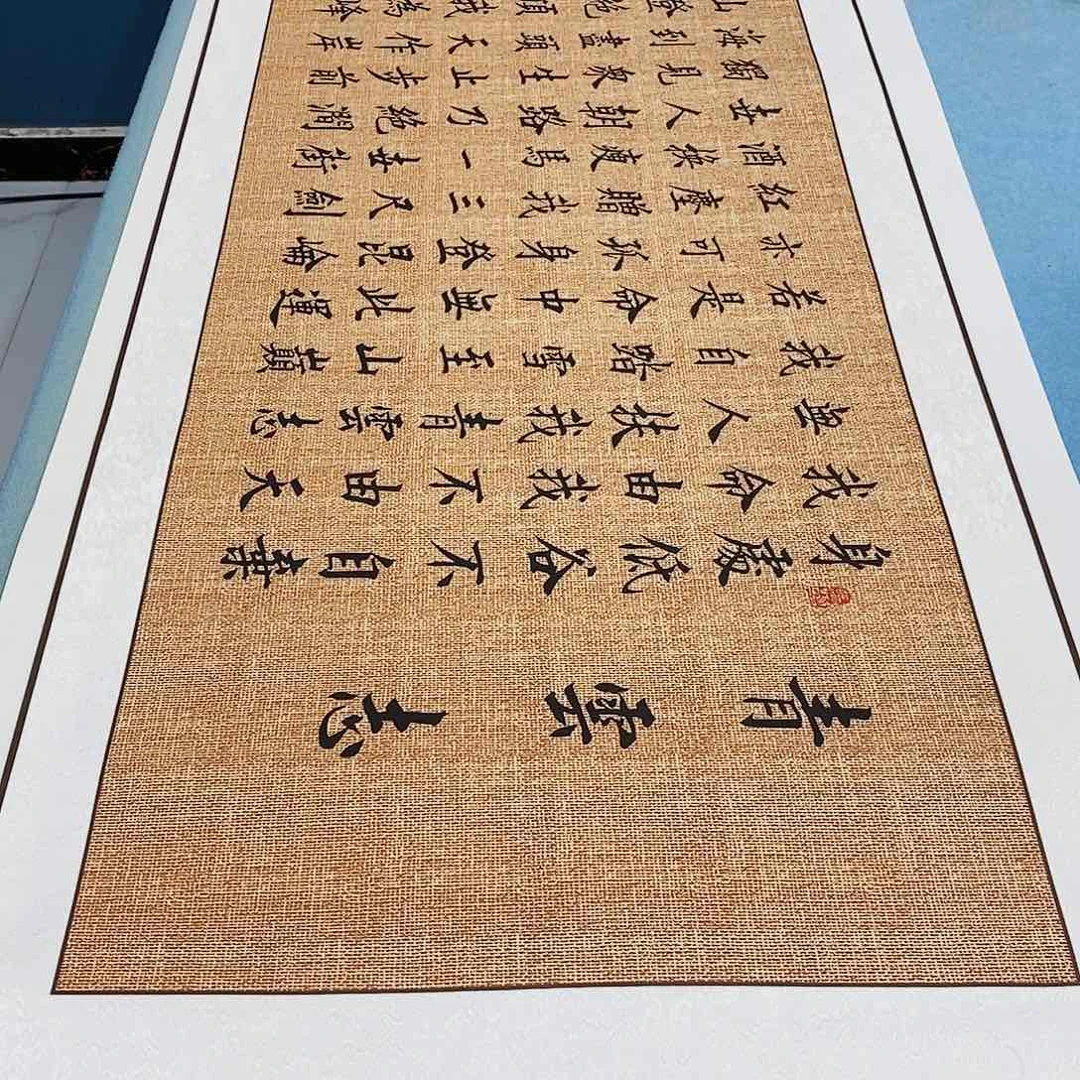 青雲志
身處低谷不自棄
我命由我不由天
無人扶我青雲志
我自踏雪至山巔
若是命中無此運
亦可孤身登昆崘
紅塵贈我三尺劍
酒瘦馬一街
世人朝路乃絕澗
獨見眾生止步前
海到盡頭天作岸
山登絕頂我為峰